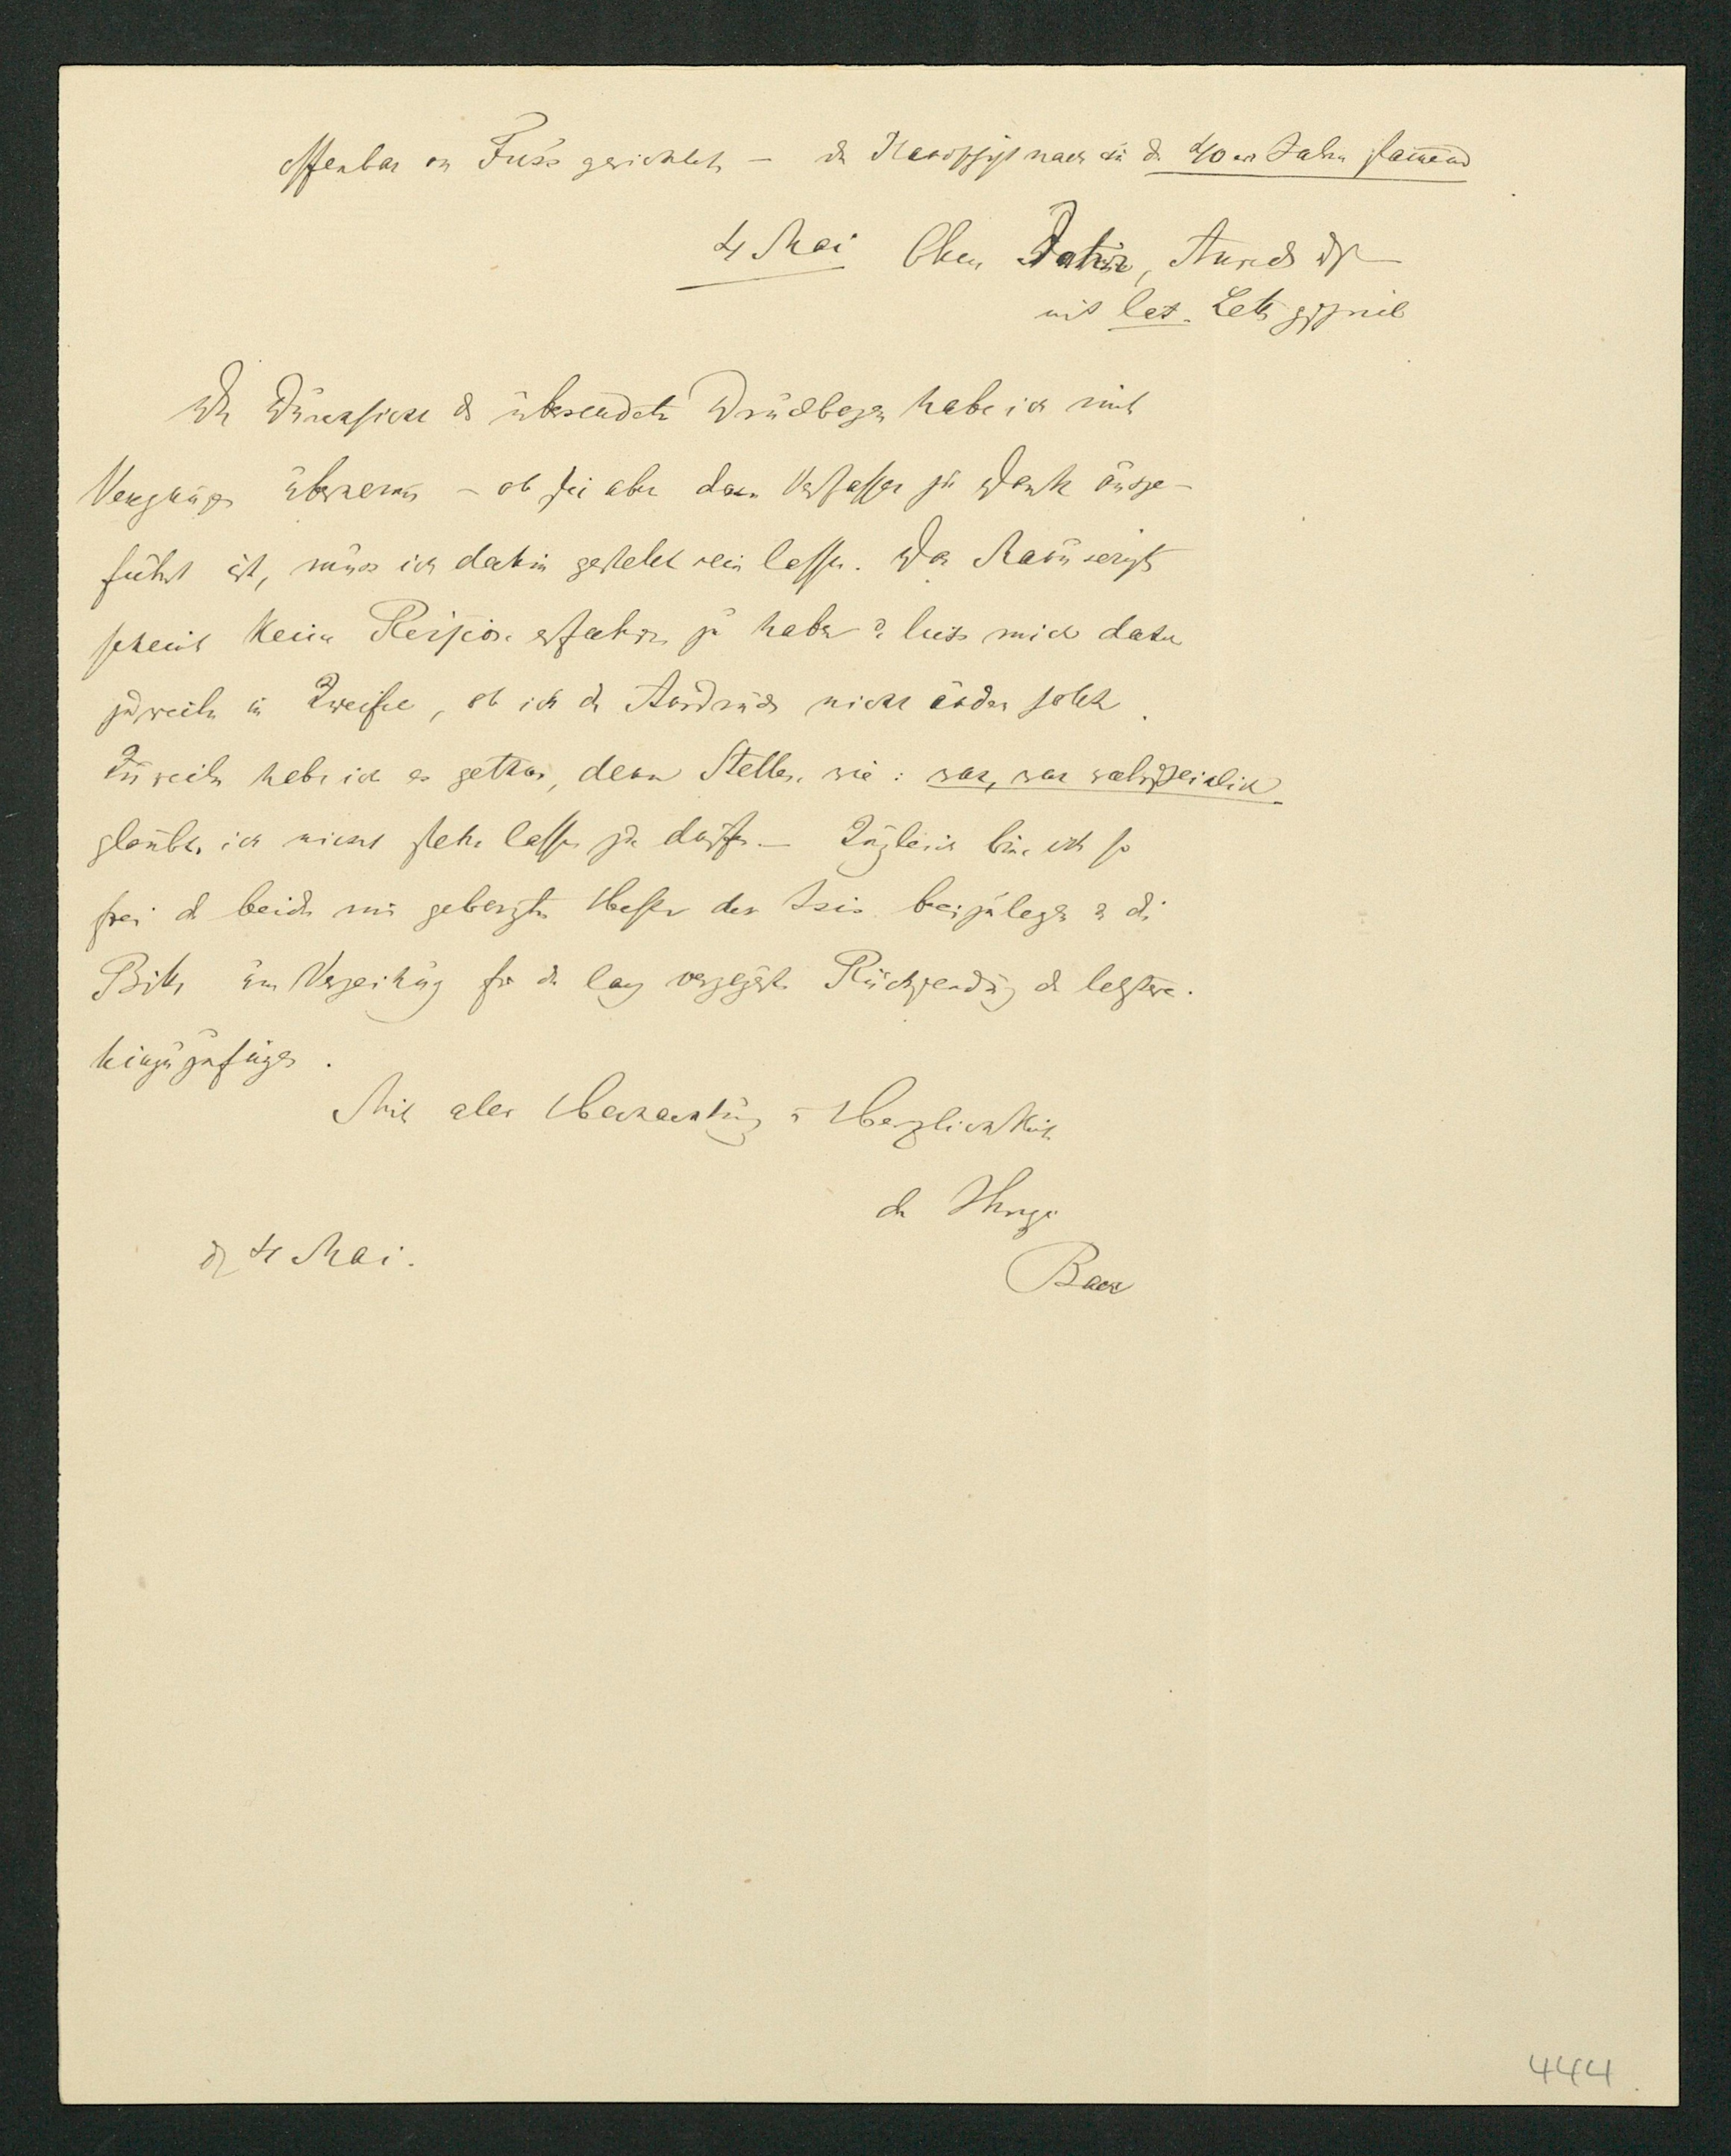 offenbar an Fuss gerichtet – der Handschrift nach aus den 40er Jahren stammend
4 Mai Ohne Datum, Anrede ist
mit lat. Lett. geschrieb
Die Durchsicht des übersendeten Druckbogens habe ich mit
Vergnügen übernommen – ob sie aber dem Verfasser zu Danke ausge-
führt ist, muss ich dahin gestellt sein lassen. Das Manuscript
scheint keine Revision erfahren zu haben u. liess mich daher
zuweilen in Zweifel, ob ich den Ausdruck nicht ändern sollte.
Zuweilen habe ich es gethan, denn Stellen wie: war, war wahrscheinlich
glaubte ich nicht stehen lassen zu dürfen. – Zugleich bin ich so
frei die beiden mir geborgten Hefte der Isis beizulegen u. die
Bitte um Verzeihung für die lang verzögerte Rücksendung der letztern
hinzuzufügen.
Mit aller Hochachtung u Herzlichkeit
der Ihrige
Baer
d 4 Mai.
444